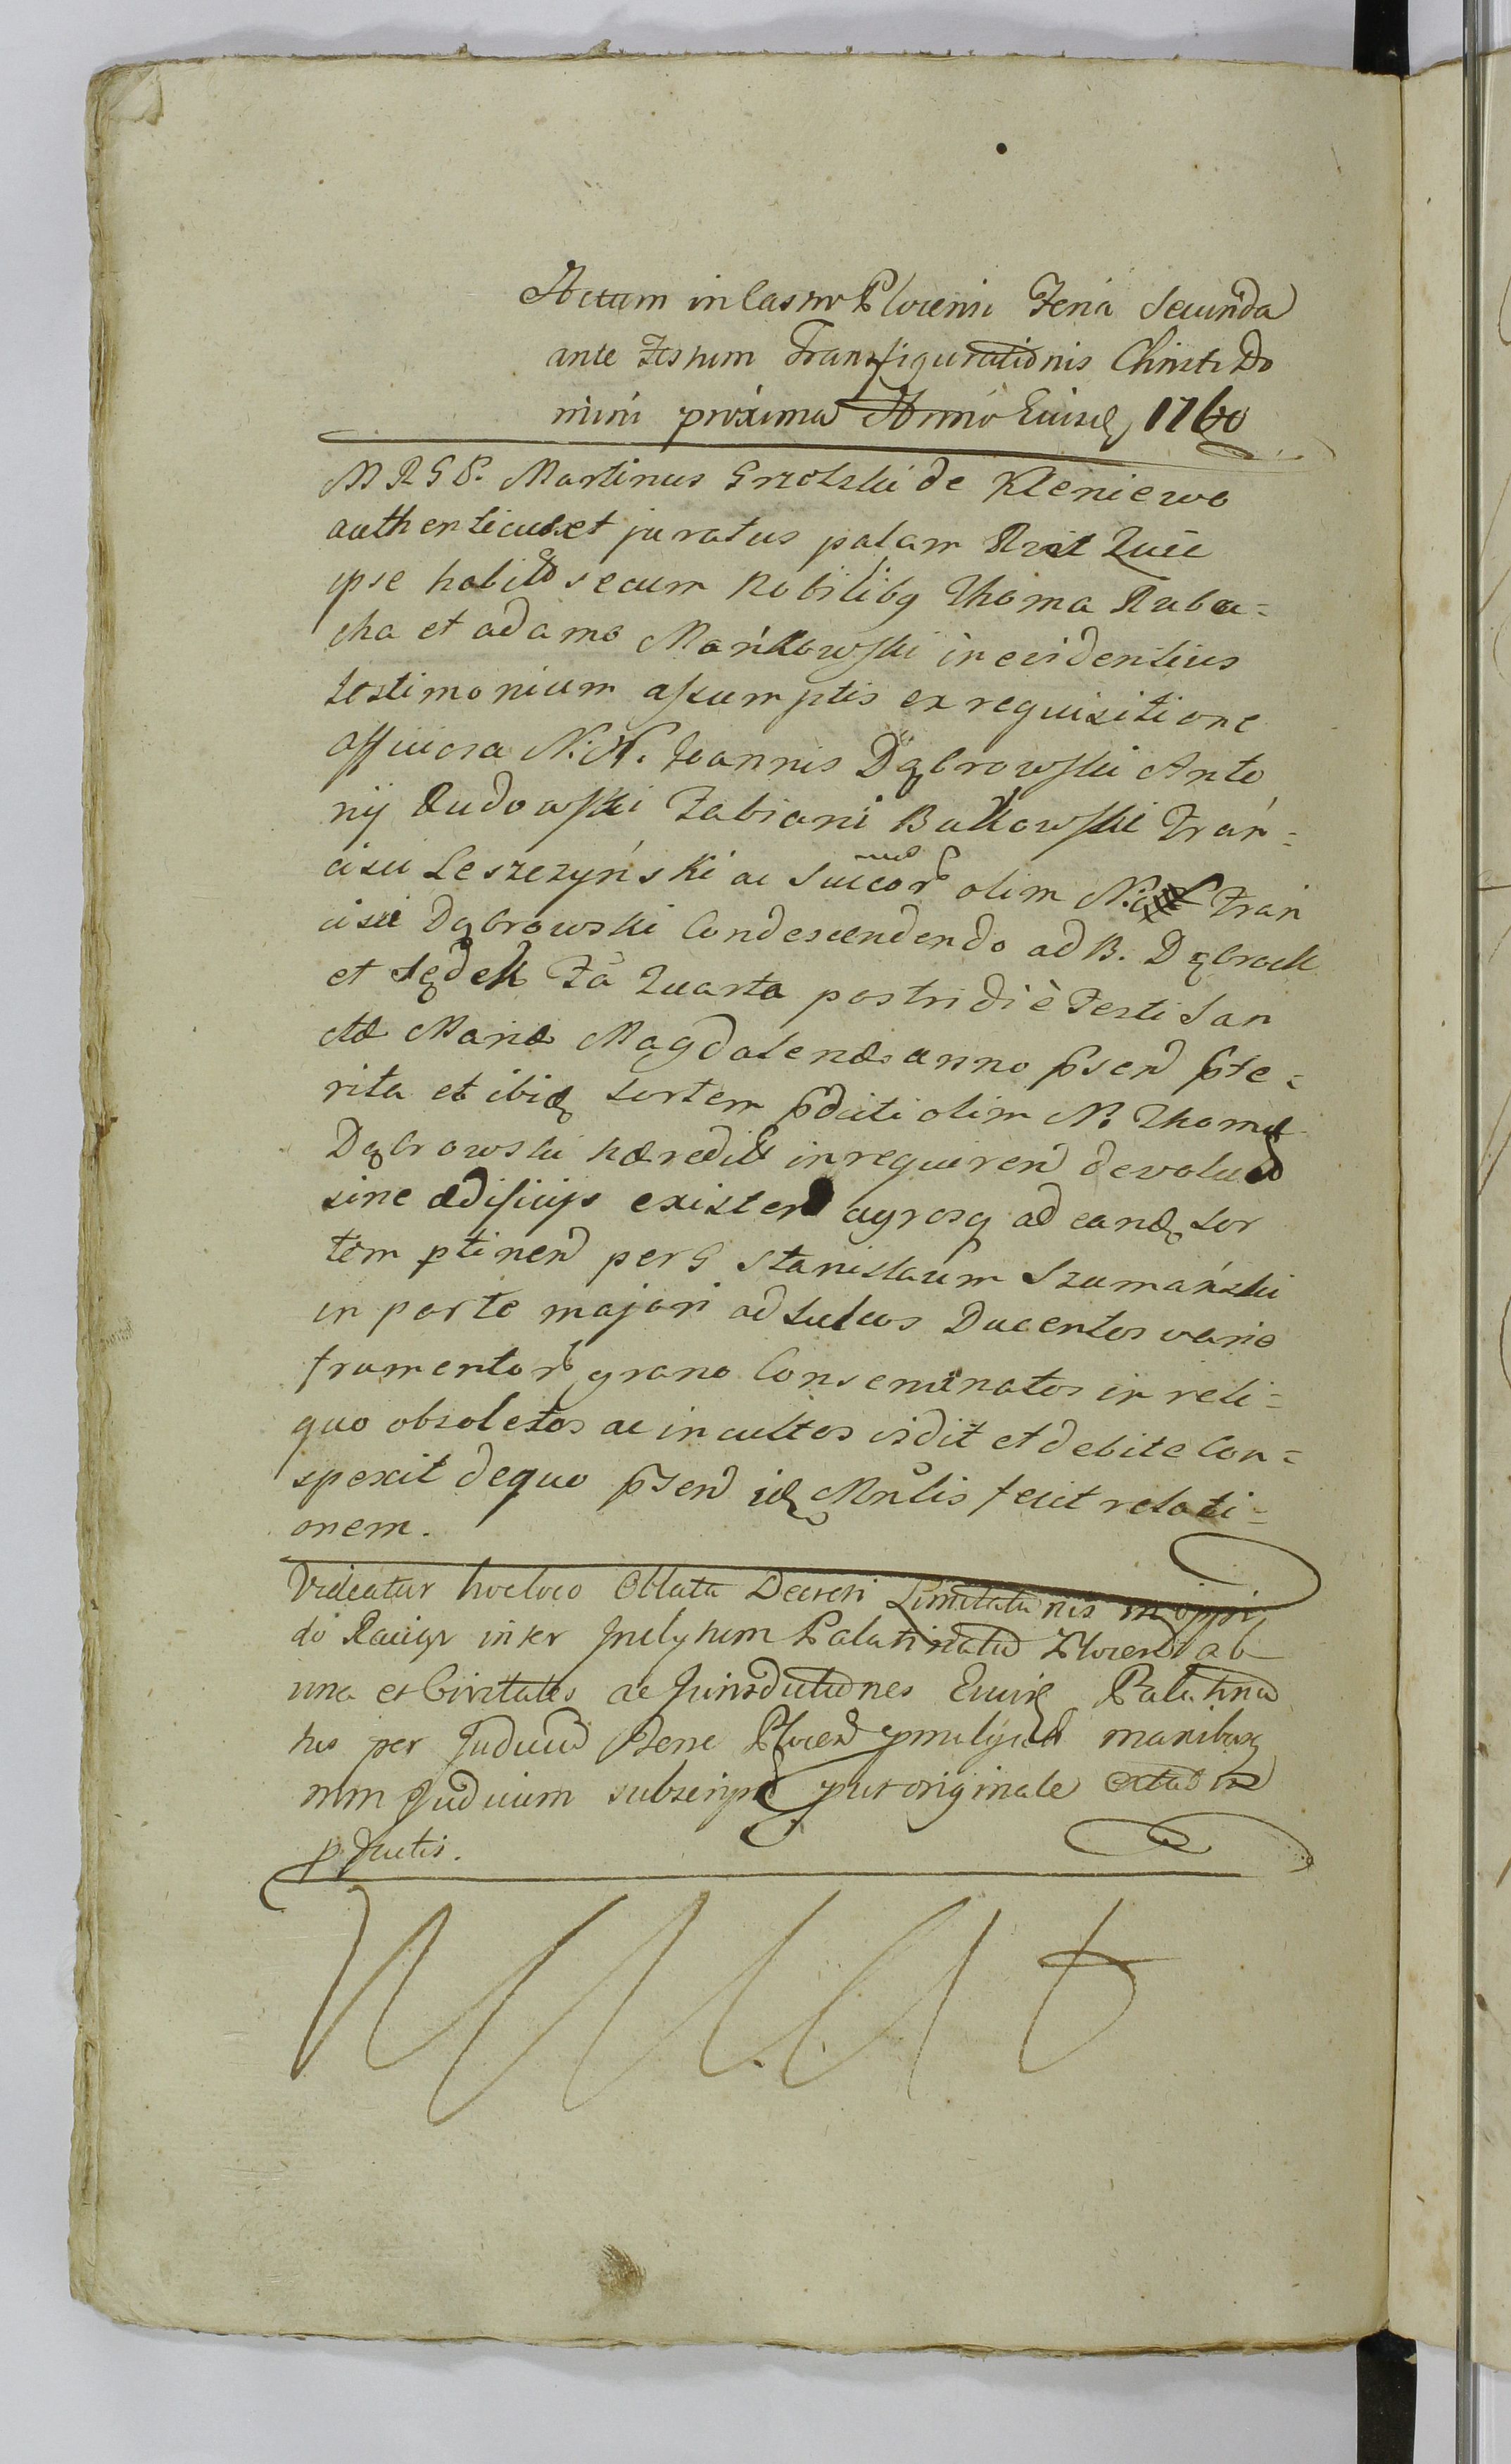 Actum in Castro Plocensi Feria Secunda
ante Festum Transfigurationis Christi Do
mini proxima Anno Eiusdq 1760
M R G S. Martinus Grzolski de Kleniewo
authenticus et juratus palam Rxit Quic
ipse habitis secum Nobilibq Thoma Ruba=
cha et adamo Mańkowski in evidentius
testimonium assumptis ex requisitione
officiosa N:N. Joannis Dąbrowski Anto
nij Rudowski Fabiani Bukowski Fran=
cisci Leszczyński ac Succorb olim N: Fran
cisci Dąbrowski Condescendendo ad B. Dąbrock
et Sędek Fa Quarta postridiè Festi San
ctæ Mariæ Magdalenæ anno psend pte=
rita et ibidq sortem pdicti olim N. Thomæ
Dąbrowski hæredit in requirend devolut
sine ædificijs existend agrosq ad eandq sor
tem ptinend per G Stanislaum Szumański
in parte majori ad sulcos Ducentos vario
frumentorb grano Conseminatos in reli=
quo obsoletos ac incultos vidit et debite Con=
spexit dequo psend idq Mnlis fecit relati=
onem.
Videatur hocloco Oblata Decreti Limitationis in oppi,
do Raciąż inter Inclytum Palatinatū Plocend ab
una et Civitates ac Jurisdictiones Eiusdq Palatina
tus per Judiciū Plocend manibusq
mm Judicium subscript put originale
p Actis.